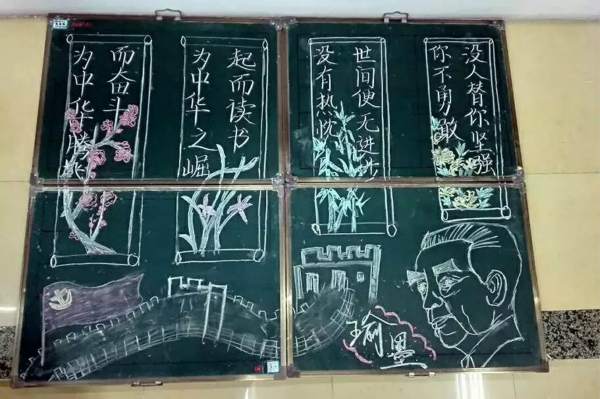 为中华腾飞
而奋斗
为中华之崛
起而读书
没有热忱
世间便无进步
你不勇敢
没人替你坚强
瑜墨